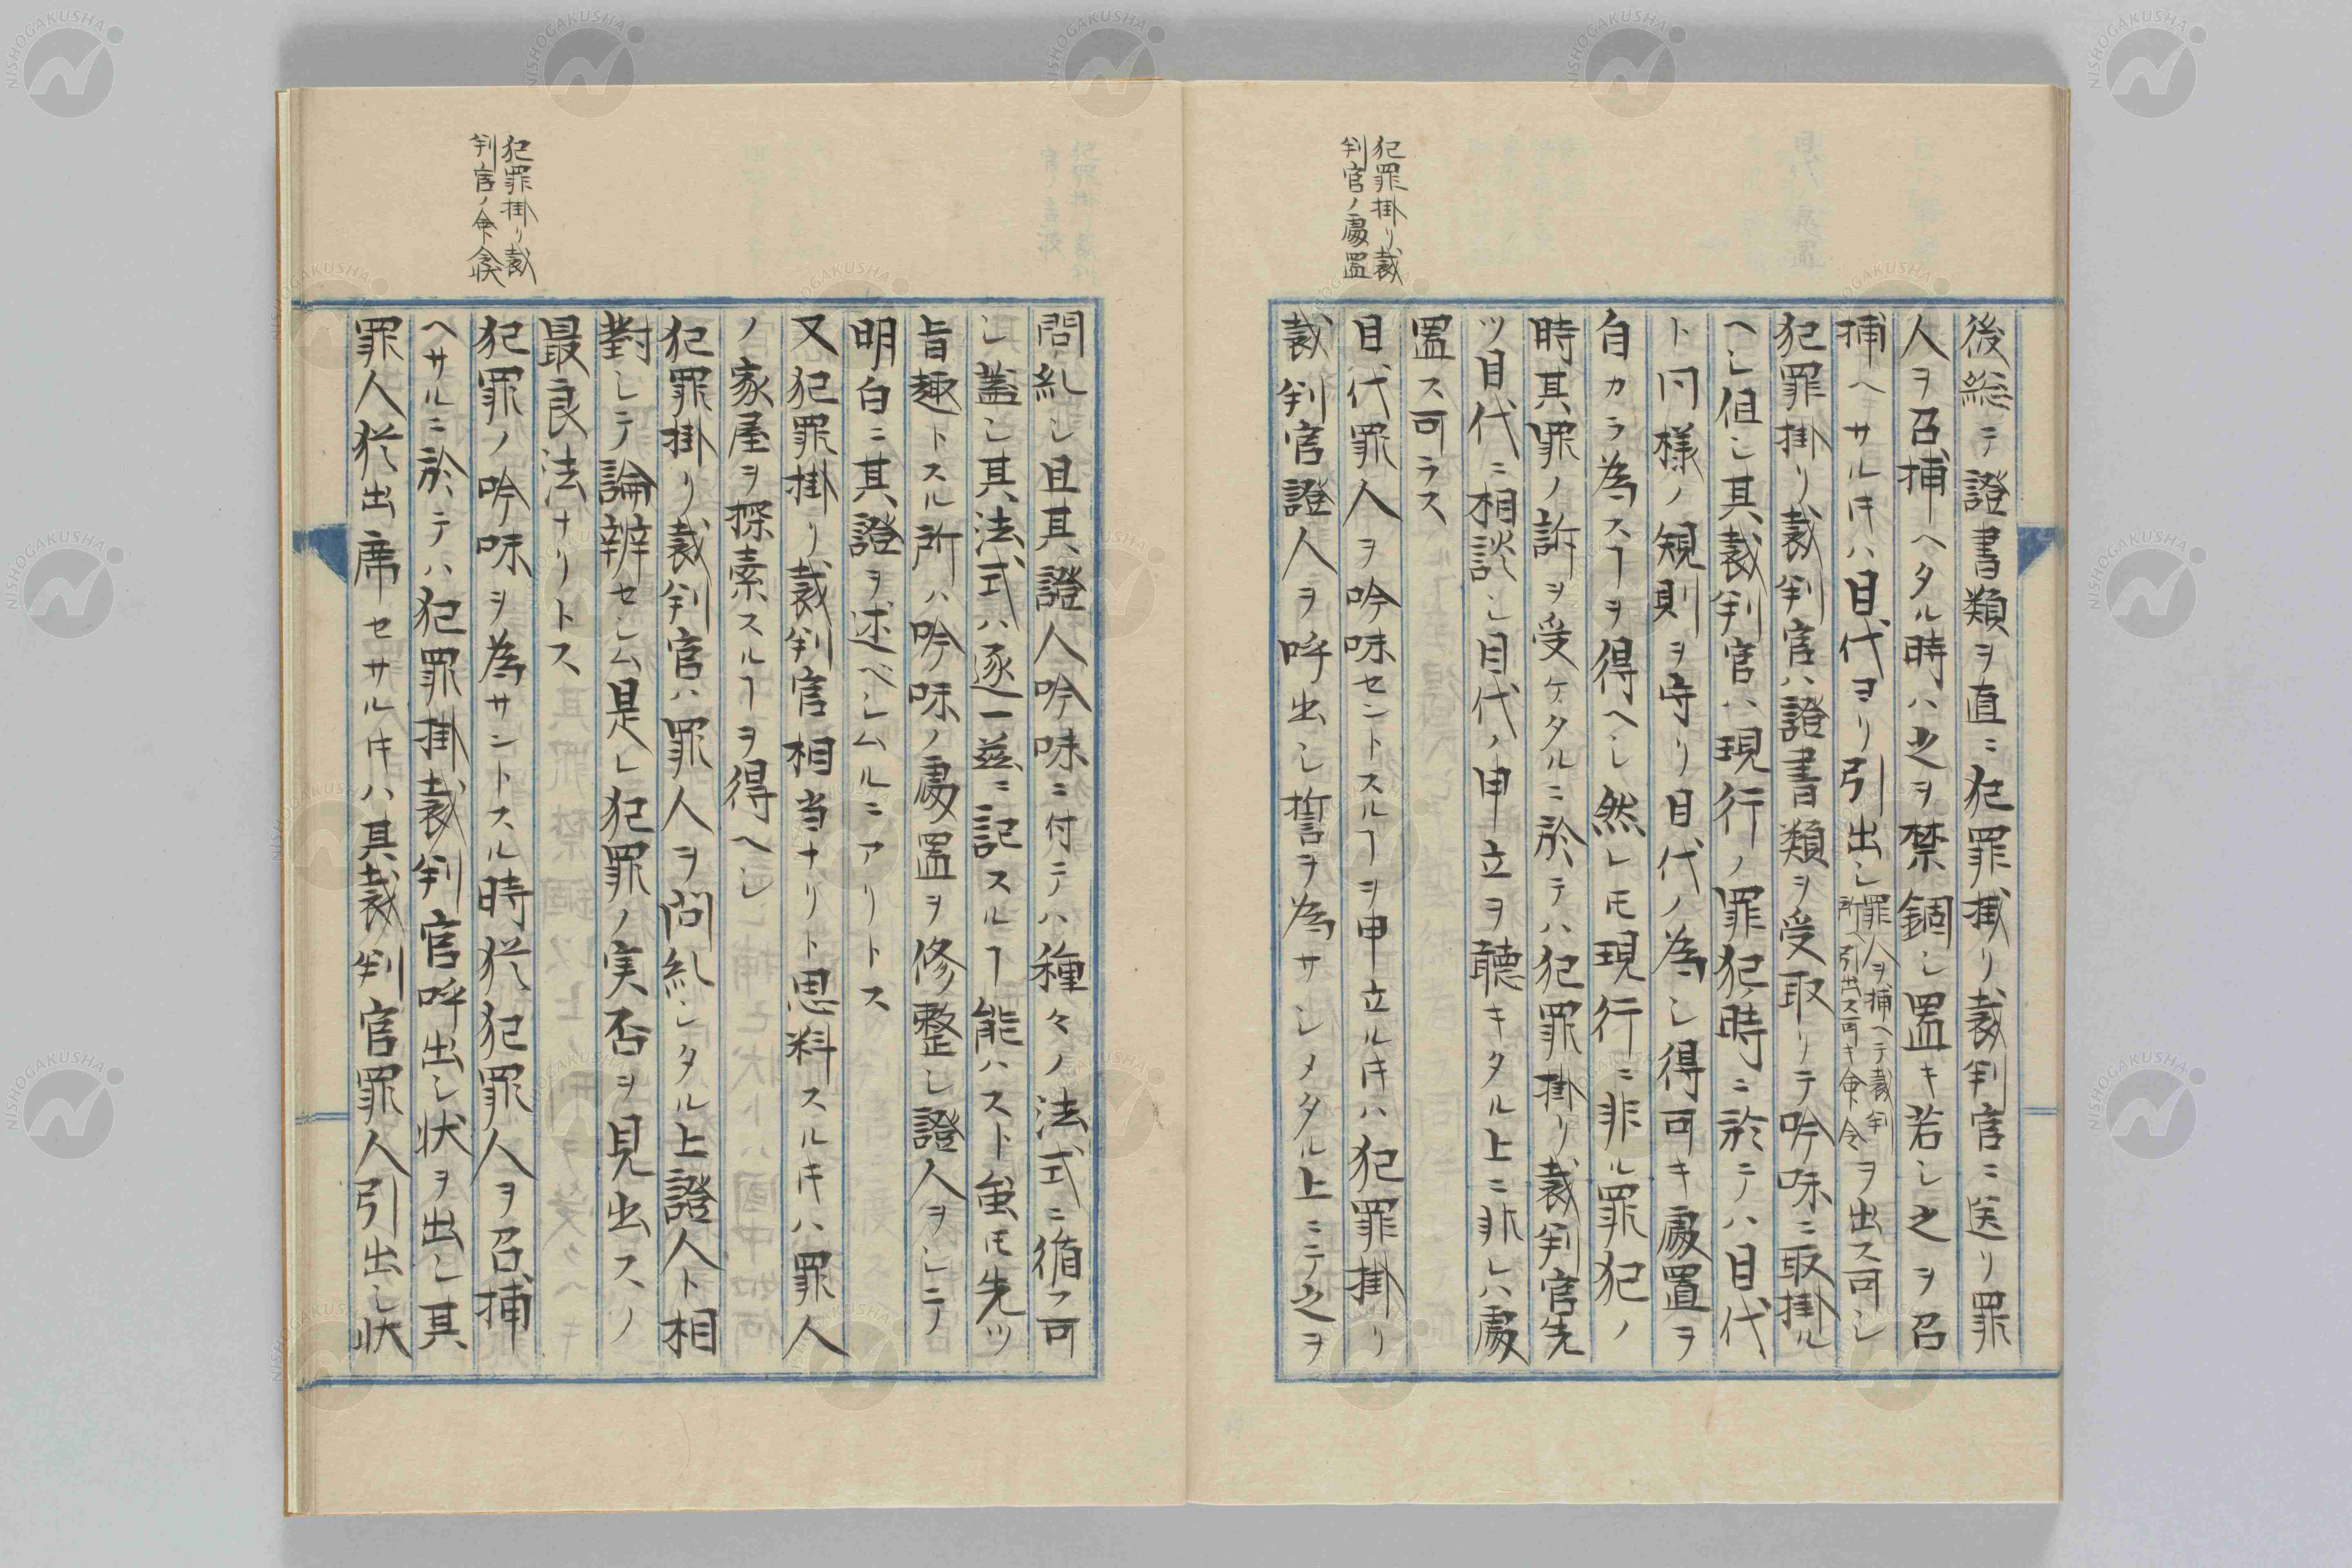 犯罪掛リ裁
判官ノ處置
後総テ證書類ヲ直ニ犯罪掛リ裁判官ニ送リ罪
人ヲ召捕ヘタル時ハ之ヲ禁錮シ置キ若シ之ヲ召
捕ヘサルキハ目代ヨリ引出シ罪人ヲ捕ヘテ裁判所ヘ引出ス可キ命令ヲ出ス可シ
犯罪掛リ裁判官ハ證書類ヲ受取リテ吟味ニ取掛ル
ヘシ但シ其裁判官ハ現行ノ罪犯時ニ於テハ目代
ト同様ノ規則ヲ守リ目代ノ為シ得可キ處置ヲ
自カラ為スヿヲ得ヘシ然レ𪜈現行ニ非ル罪犯ノ
時其罪ノ訴ヲ受ケタルニ於テハ犯罪掛リ裁判官先
ツ目代ニ相談シ目代ノ申立ヲ聽キタル上ニ非レハ處
置ス可ラス
目代罪人ヲ吟味セントスルヿヲ申立ルキハ犯罪掛リ
裁判官證人ヲ呼出シ誓ヲ為サシメタル上ニテ之ヲ
問糺シ且其證人吟味ニ付テハ種々ノ法式ニ循フ可
シ蓋シ其法式ハ逐一茲ニ記スルヿ能ハスト虽𪜈先ツ
旨趣トスル所ハ吟味ノ處置ヲ修整シ證人ヲシテ
明白ニ其證ヲ述ベシムルニアリトス
又犯罪掛リ裁判官相当ナリト思料スルキハ罪人
ノ家屋ヲ探索スルヿヲ得ヘシ
犯罪掛リ裁判官ハ罪人ヲ問糺シタル上證人ト相
對シテ論辨セシム是レ犯罪ノ実否ヲ見出スノ
最良法ナリトス
犯罪掛リ裁
判官ノ命令状
犯罪ノ吟味ヲ為サントスル時犹犯罪人ヲ召捕
ヘサルニ於テハ犯罪掛裁判官呼出シ状ヲ出シ其
罪人犹出席セサルキハ其裁判官罪人引出シ状